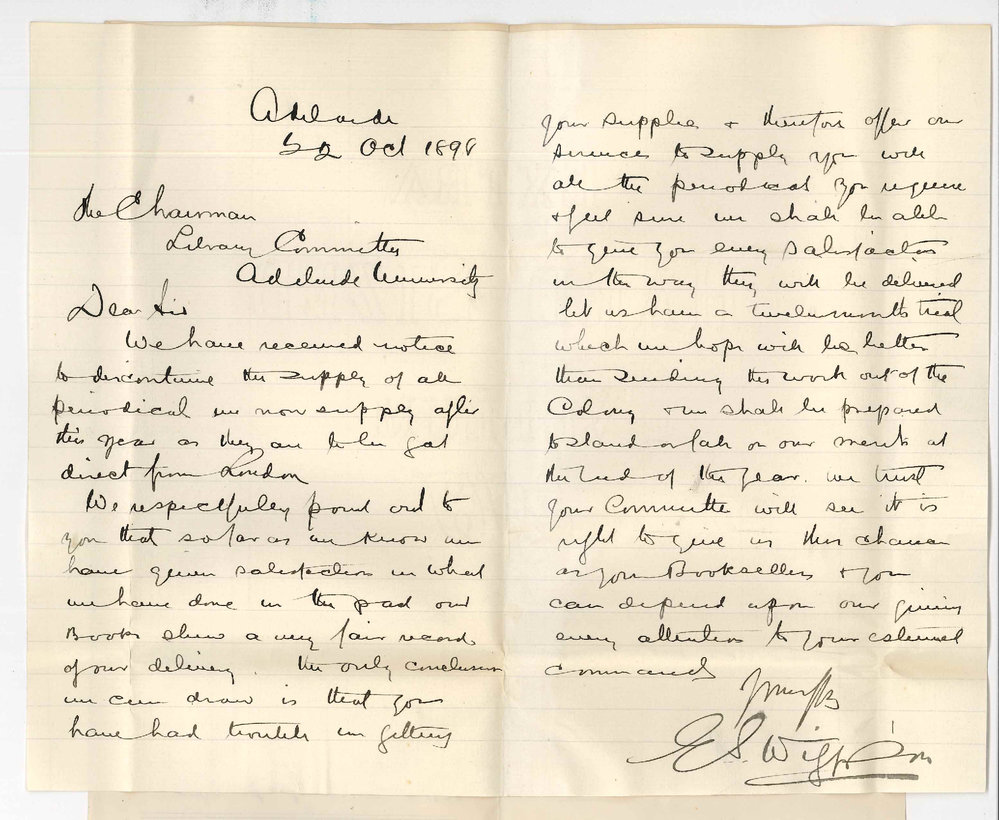 Adelaide
22 Oct 1898
The Chairman
Library Committee
Adelaide University
Dear Sir
We have received notice
to discontinue the supply of all
periodical we now supply after
this year as they are to be got
direct from London
We respectfully point out to
you that so far as we know we
have given satisfaction in what
we have done in the past our
Books shew a very fair record
of our delivery. The only conclusion
we can draw is that you
have had trouble in getting
your supplies & therefore offer our
services to supply you with
all the periodical you require
& feel sure we shall be able
to give you every satisfaction
in the way they will be delivered
let us have a twelvemonths trial
which we hope will be better
than sending the work out of the
Colony & we shall be prepared
to stand or fall on our merits at
the end of the year. we trust
your Committee will see it is
right to give us this chance
as your Booksellers & you
can depend upon our giving
every attention to your esteemed
commands
E S. Wigg & Son